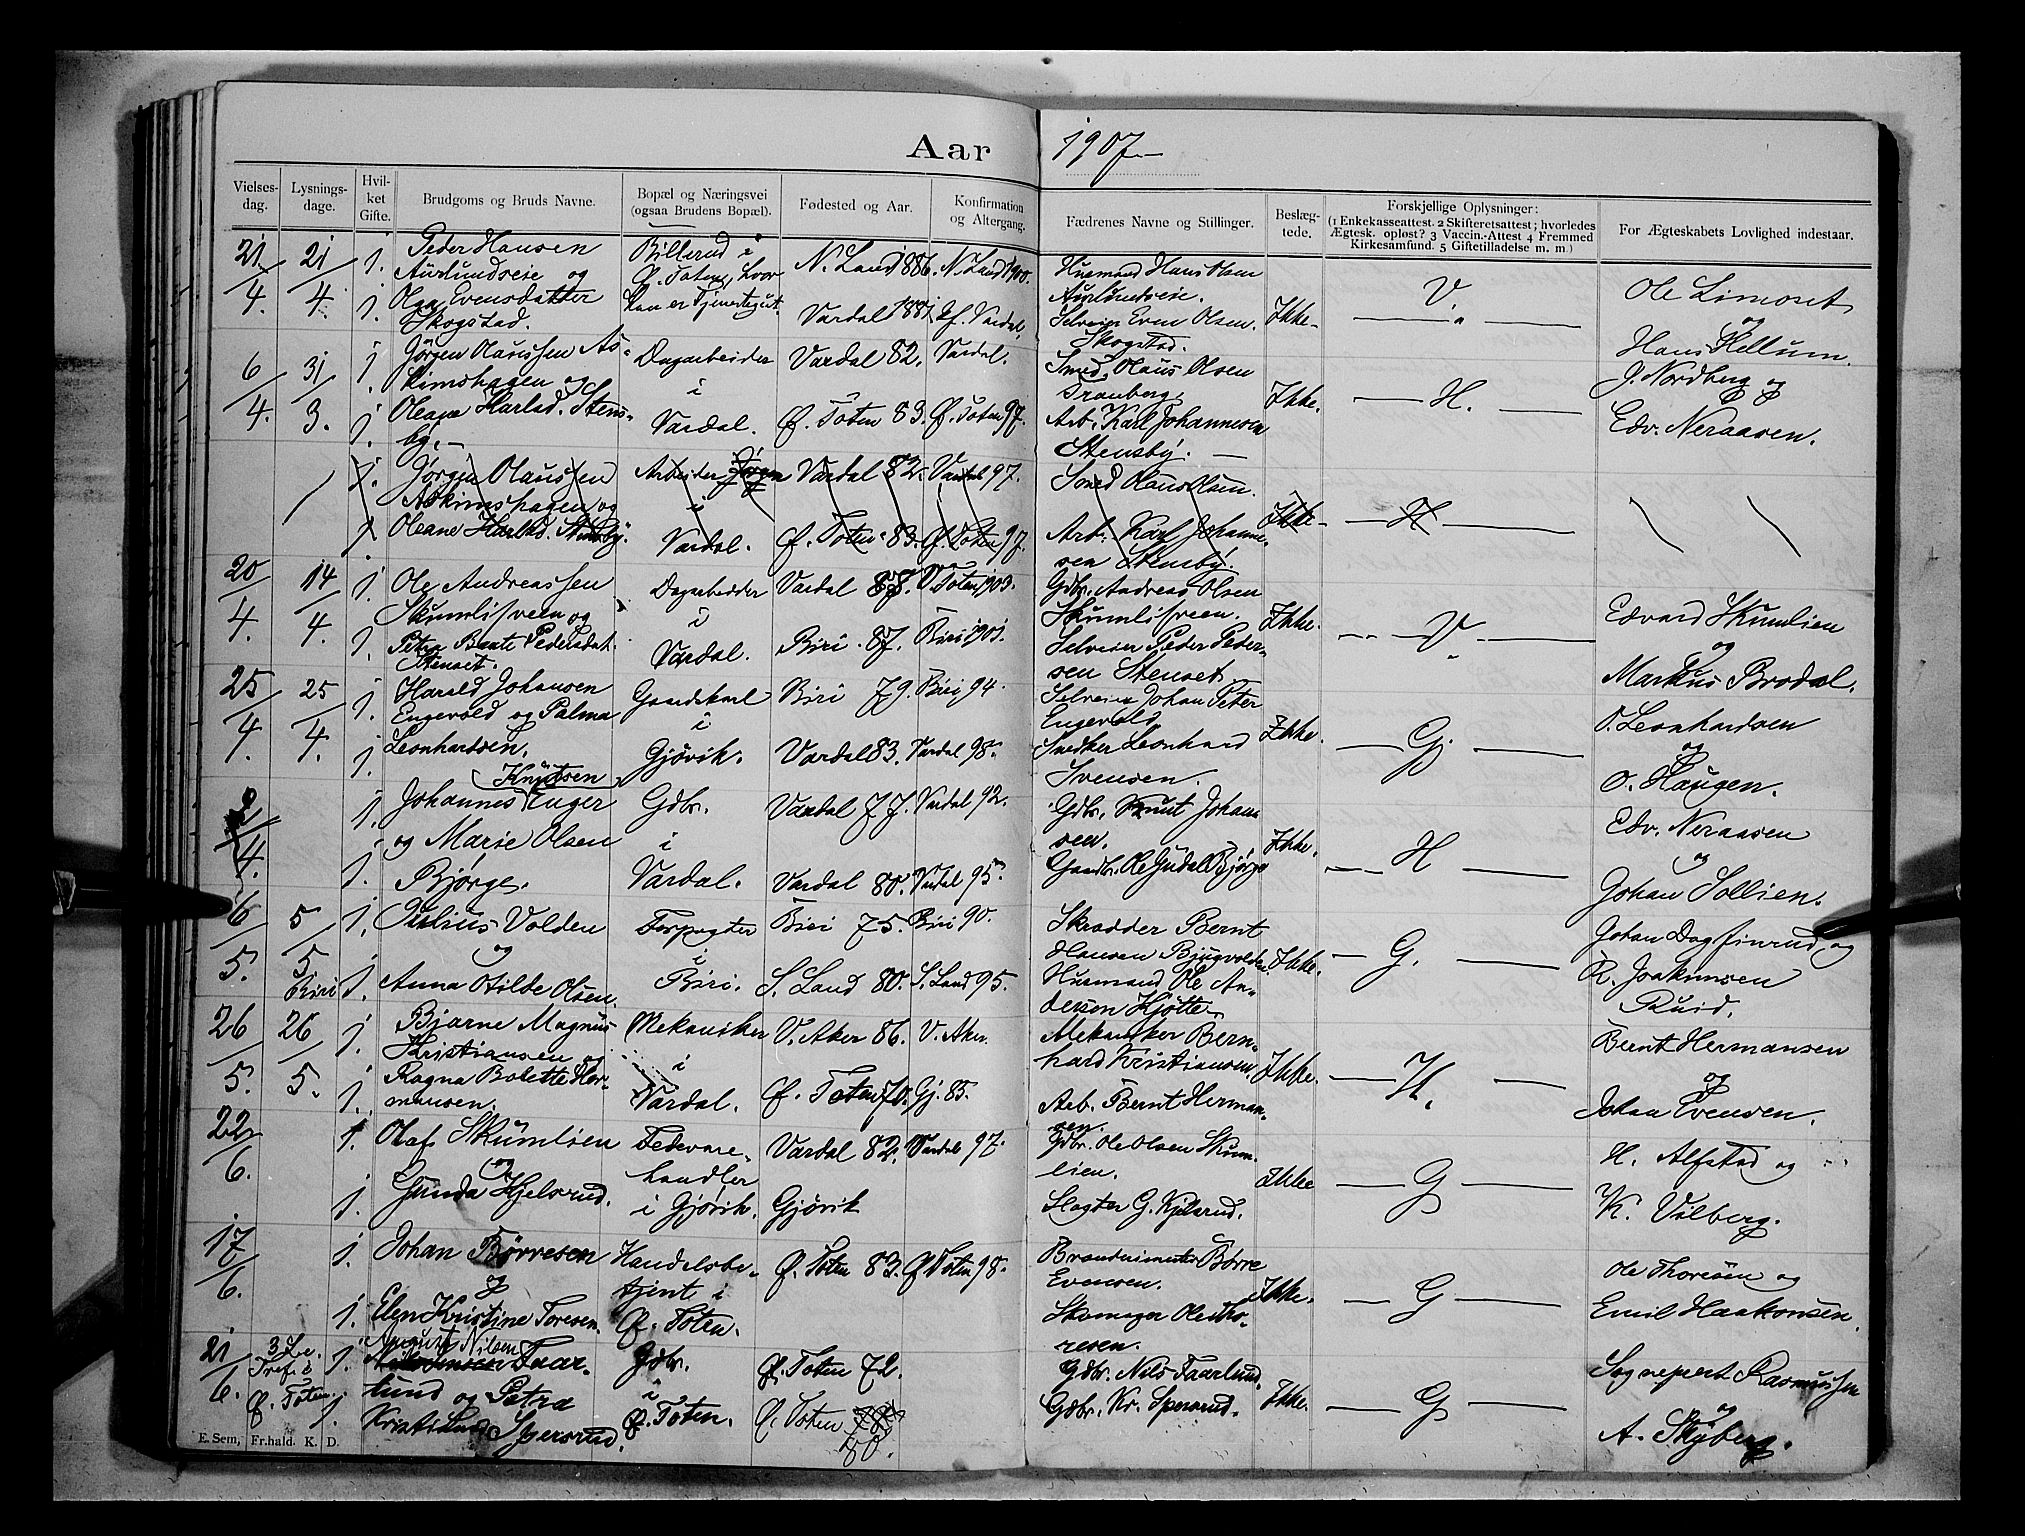 Aar 1907
Vielses-dag. Lysnings-dage. Hvil-ket Gifte. Brudgoms og Bruds Navne. Bopæl og Næringsvei (ogsaa Brudens Bopæl). Fødested og Aar. Konfirmation og Altergang. Fædrenes Navne og Stillinger. Beslæg-tede. Forskjellige Oplysninger: (1 Enkekasseattest. 2 Skifteretsattest; hvorledes Ægtesk. opløst? 3 Vaccin.-Attest 4 Fremmed Kirkesamfund. 5 Giftetilladelse m. m.) For Ægteskabets Lovlighed indestaar.
21/4. 21/4. 1. Peder Hansen Billerud i N. Land 1886. N. Land 1900. Husmand Hans Olsen
Aurlundseie og Ø. Toten, hvor Aurlundseie. V. Ole Limoset
1. Olga Evensdatter han er Tjenestegut. Vardal 1887. Vardal. Selveier Even Olsen Ikke og
Skogstad. Skogstad. Hans Hellum.
6/4. 31/3. 1. Jørgen Olaussen As- Dagarbeider Vardal 82. Vardal. Smed Olaus Olsen J. Nordberg og
kimshagen og i Tranberg. Ikke. H.
1. Oleane Harlad. Stens- Vardal. Ø. Toten 83. Ø. Toten 97. Arb. Karl Johannesen Edv. Neraasen.
by. Stensby.
1. Jørgen Olaussen Arbeider Vardal 82. Vardal 97. Smed Olaus Olsen.
Askimshagen og i Ikke H
1. Oleane Harlad. Stensby. Vardal. Ø. Toten 83. Ø. Toten 97. Arb. Karl Johanne-
sen Stensby.
20/4. 14/4. 1. Ole Andreassen Dagarbeider Vardal 88. V. Toten 1903. Gdbr. Andreas Olsen
Skumlisveen og i Skumlisveen. Ikke. V. Edvard Skumlien
1. Petra Beate Pedersdat. Vardal. Biri 87. Biri 1901. Selveier Peder Peder- og
Stenset. sen Stenset. Markus Brodal.
25/4. 25/4. 1. Harald Johansen Gaardskarl Biri 79. Biri 94. Selveier Johan Peter
Engevold og Palma i Engevold Ikke. Gj. O. Leonhardsen
1. Leonhardsen. Gjøvik. Vardal 83. Vardal 98. Snedker Leonhard og
Svensen. O. Haugen.
Knutsen
/4. 1. Johannes Enger Gdbr. Vardal 77. Vardal 92. Gdbr. Knut Johan- Edv. Neraasen
og Marie Olsen i sen. Ikke. H og
1. Bjørge. Vardal. Vardal 80. Vardal 95. Gaardbr. Ole Gudal Bjørge Johan Sollien.
6/5. 5/5 Biri 1. Julius Volden Forpagter Biri 75. Biri 90. Skrædder Bernt Johan Dagfinrud og
og i Hansen Bjugvolden. Ikke. G. R. Joakimsen
1. Anna Otilde Olsen. Biri. S. Land 80. S. Land 95. Husmand Ole An- Ruud.
dersen Kjøtte.
26/5. 26/5. 1. Bjarne Magnus Mekaniker V. Aker 86. V. Aker. Mekaniker Bern- Bernt Hermansen
Kristiansen og i hard Kristiansen. Ikke. H. og
1. Ragna Bolette Her- Vardal. Ø. Toten 70. Gj. 85. Arb. Bernt Herman- Johan Evensen.
mansen. sen.
22/6. 1. Olaf Skumlien Fedevare- Vardal 82. Vardal 97. Gdbr. Ole Olsen Skum- H. Alfstad og
og handler lien. Ikke G
1. Gunda Kjelsrud. i Gjøvik. Gjøvik Slagter G. Kjelsrud. K. Vilberg.
17/6. 1. Johan Børresen Handelsbe- Ø. Toten 83. Ø. Toten 98. Børre Ole Thoresen og
og tjent i Evensen. Ikke. G
1. Elen Kristine Toresen. Ø. Toten. Skomager Ole Tho- Emil Haakonsen.
resen.
21/6. Ø. Toten. August Nilsen
1. Faar- Gdbr. Ø. Toten 72. Gdbr. Nils Faarlund. Sogneprest Rasmussen
1. lund og Petra i Gdbr. Kr. Spersrud. Ikke. G og
Spersrud. Ø. Toten. Ø. Toten 80. A. Skyberg.
E. Sem, Fr.hald. K. D.